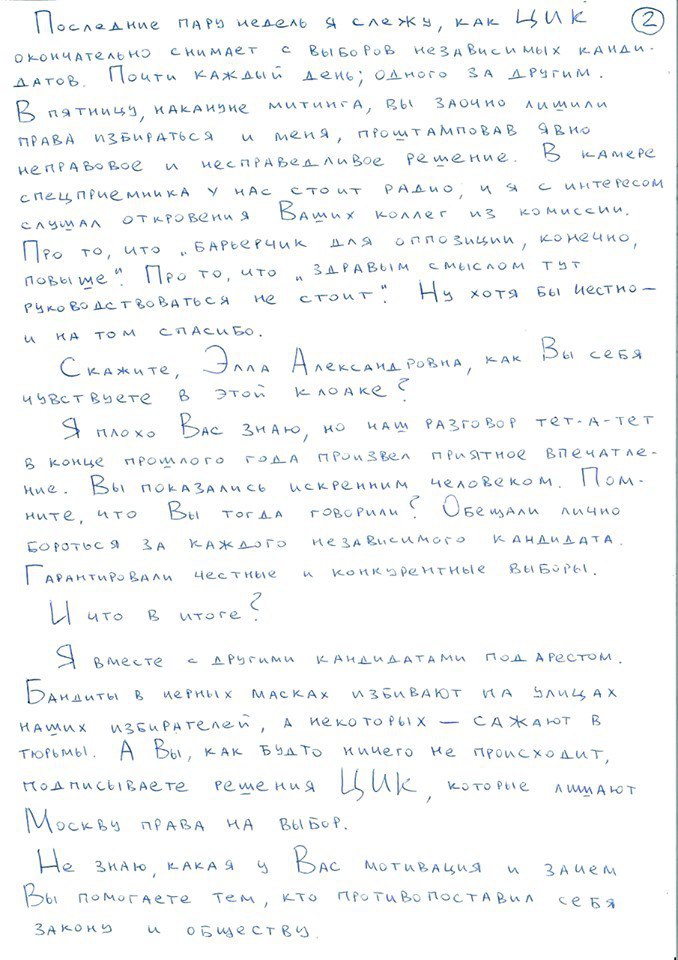 Последние пару недель я слежу, как ЦИК
2
окончательно снимает с выборов независимых канди-
датов. Почти каждый день; одного за другим.
В пятницу, накануне митинга, вы заочно лишили
права избираться и меня, проштамповав явно
неправовое и несправедливое решение. В камере
спецприемника у нас стоит радио, и я с интересом
слушал откровения Ваших коллег из комиссии.
Про то, что „барьерчик для оппозиции, конечно,
повыше". Про то, что „здравым смыслом тут
руководствоваться не стоит". Ну хотя бы честно —
и на том спасибо.
Скажите, Элла Александровна, как Вы себя
чувствуете в этой клоаке?
Я плохо Вас знаю, но наш разговор тет-а-тет
в конце прошлого года произвел приятное впечатле-
ние. Вы показались искренним человеком. Пом-
ните, что Вы тогда говорили? Обещали лично
бороться за каждого независимого кандидата.
Гарантировали честные и конкурентные выборы.
И что в итоге?
Я вместе с другими кандидатами под арестом.
Бандиты в черных масках избивают на улицах
наших избирателей, а некоторых — сажают в
тюрьмы. А Вы, как будто ничего не происходит,
подписываете решения ЦИК, которые лишают
Москву права на выбор.
Не знаю, какая у Вас мотивация и зачем
Вы помогаете тем, кто противопоставил себя
закону и обществу.